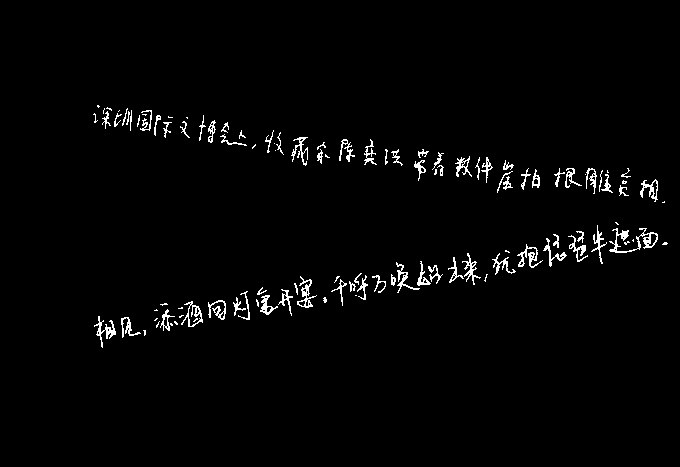 深圳国际文博会上,收藏家陈奕洪带着数件崖柏根雕亮相.
相见,添酒回灯重开宴。千呼万唤始出来,犹抱琵琶半遮面。